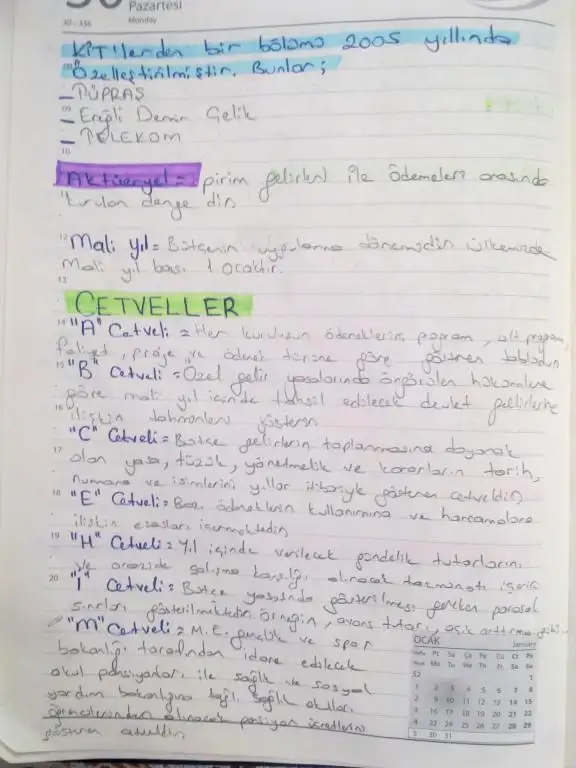 30
Pazartesi
Monday
30 - 336
KİT'lerden bir bölümü 2005 yıllında
Özelleştirilmiştir. Bunlar;
_ TÜPRAŞ
09
_ Ereğli Demir Çelik
_ TELEKOM
10
Aktüeryel = pirim gelirleri ile ödemeleri arasında
kurulan denge dir
12 Mali yıl = Bütçenin uygulanma dönemidir ülkemizde
Mali yıl başı 1 ocaktır.
13
CETVELLER
14 "A" Cetveli = Her kuruluşun ödeneklerini, program, alt program,
faliyet, proje ve ödenek türüne göre gösteren tablodur
15 "B" Cetveli = Özel gelir yasalarında öngörülen hükümlere
göre mali yıl içinde tahsil edilecek devlet gelirlerine
16 ilişkin tahminleri gösterir
"C" Cetveli = Bütçe gelirlerin toplanmasına dayanak
17 olan yasa, tüzük, yönetmelik ve kararların tarih,
numara ve isimlerini yıllar itibariyle gösteren cetveldir
18 "E" Cetveli = Bazı ödeneklerin kullanımına ve harcamalara
ilişkin esasları içermektedir
19 "H" Cetveli = Yıl içinde verilecek gündelik tutarlarını
ve arazide çalışma karşılığı alınacak tazminatı içerir
20 "İ" Cetveli = Bütçe yasasında gösterilmesi gereken parasal
sınırları gösterilmektedir. Örneğin, avans tutarı, açık arttırma gibi..
"M" Cetveli = M.E. gençlik ve spor
bakanlığı tarafından idare edilecek
okul pansiyonları ile sağlık ve sosyal
yardım bakanlığına bağlı sağlık okulları
öğrencilerinden alınacak pansiyon ücretlerini
gösteren cetveldir
OCAK January
Hafta Pt Sa Ça Pe Cu Ct Pz
Week Mo Tu We Th Fr Sa Su
52 1
1 2 3 4 5 6 7 8
2 9 10 11 12 13 14 15
3 16 17 18 19 20 21 22
4 23 24 25 26 27 28 29
5 30 31